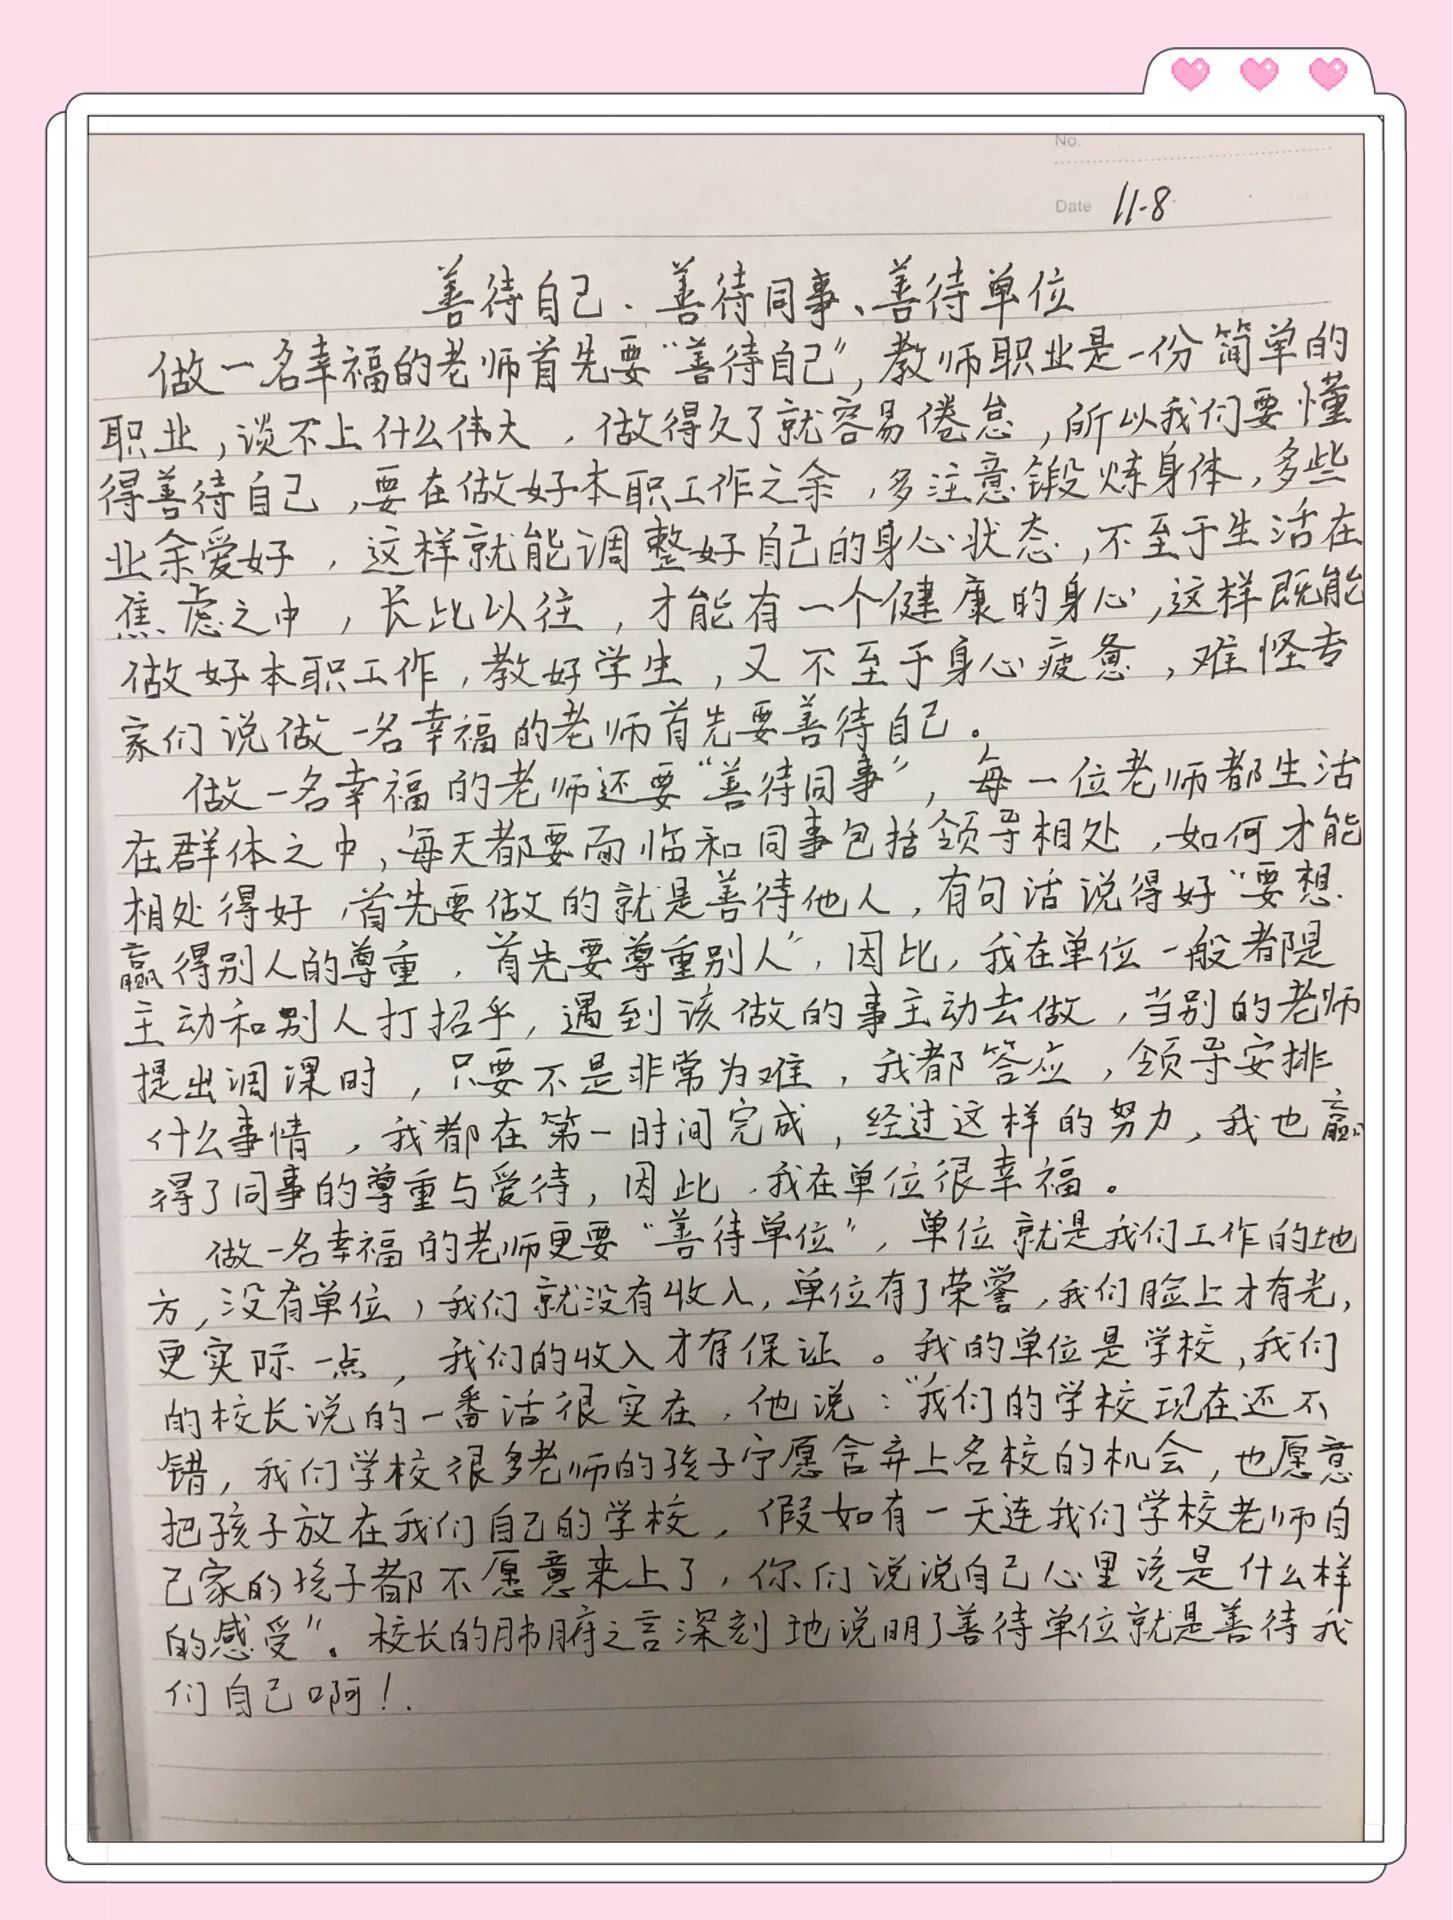 No.
Date 11-8
善待自己、善待同事、善待单位
做一名幸福的老师首先要“善待自己”,教师职业是一份简单的
职业,谈不上什么伟大,做得久了就容易倦怠,所以我们要懂
得善待自己,要在做好本职工作之余,多注意锻炼身体,多些
业余爱好,这样就能调整好自己的身心状态,不至于生活在
焦虑之中,长此以往,才能有一个健康的身心,这样既能
做好本职工作,教好学生,又不至于身心疲惫,难怪专
家们说做一名幸福的老师首先要善待自己。
做一名幸福的老师还要“善待同事”,每一位老师都生活
在群体之中,每天都要面临和同事包括领导相处,如何才能
相处得好,首先要做的就是善待他人,有句话说得好“要想
赢得别人的尊重,首先要尊重别人”,因此,我在单位一般都是
主动和别人打招乎,遇到该做的事主动去做,当别的老师
提出调课时,只要不是非常为难,我都答应,领导安排
什么事情,我都在第一时间完成,经过这样的努力,我也赢
得了同事的尊重与爱待,因此,我在单位很幸福。
做一名幸福的老师更要“善待单位”,单位就是我们工作的地
方,没有单位,我们就没有收入,单位有了荣誉,我们脸上才有光,
更实际一点,我们的收入才有保证。我的单位是学校,我们
的校长说的一番话很实在,他说:“我们的学校现在还不
错,我们学校很多老师的孩子宁愿舍弃上名校的机会,也愿意
把孩子放在我们自己的学校,假如有一天连我们学校老师自
己家的孩子都不愿意来上了,你们说说自己心里该是什么样
的感受”。校长的肺腑之言深刻地说明了善待单位就是善待我
们自己啊!.